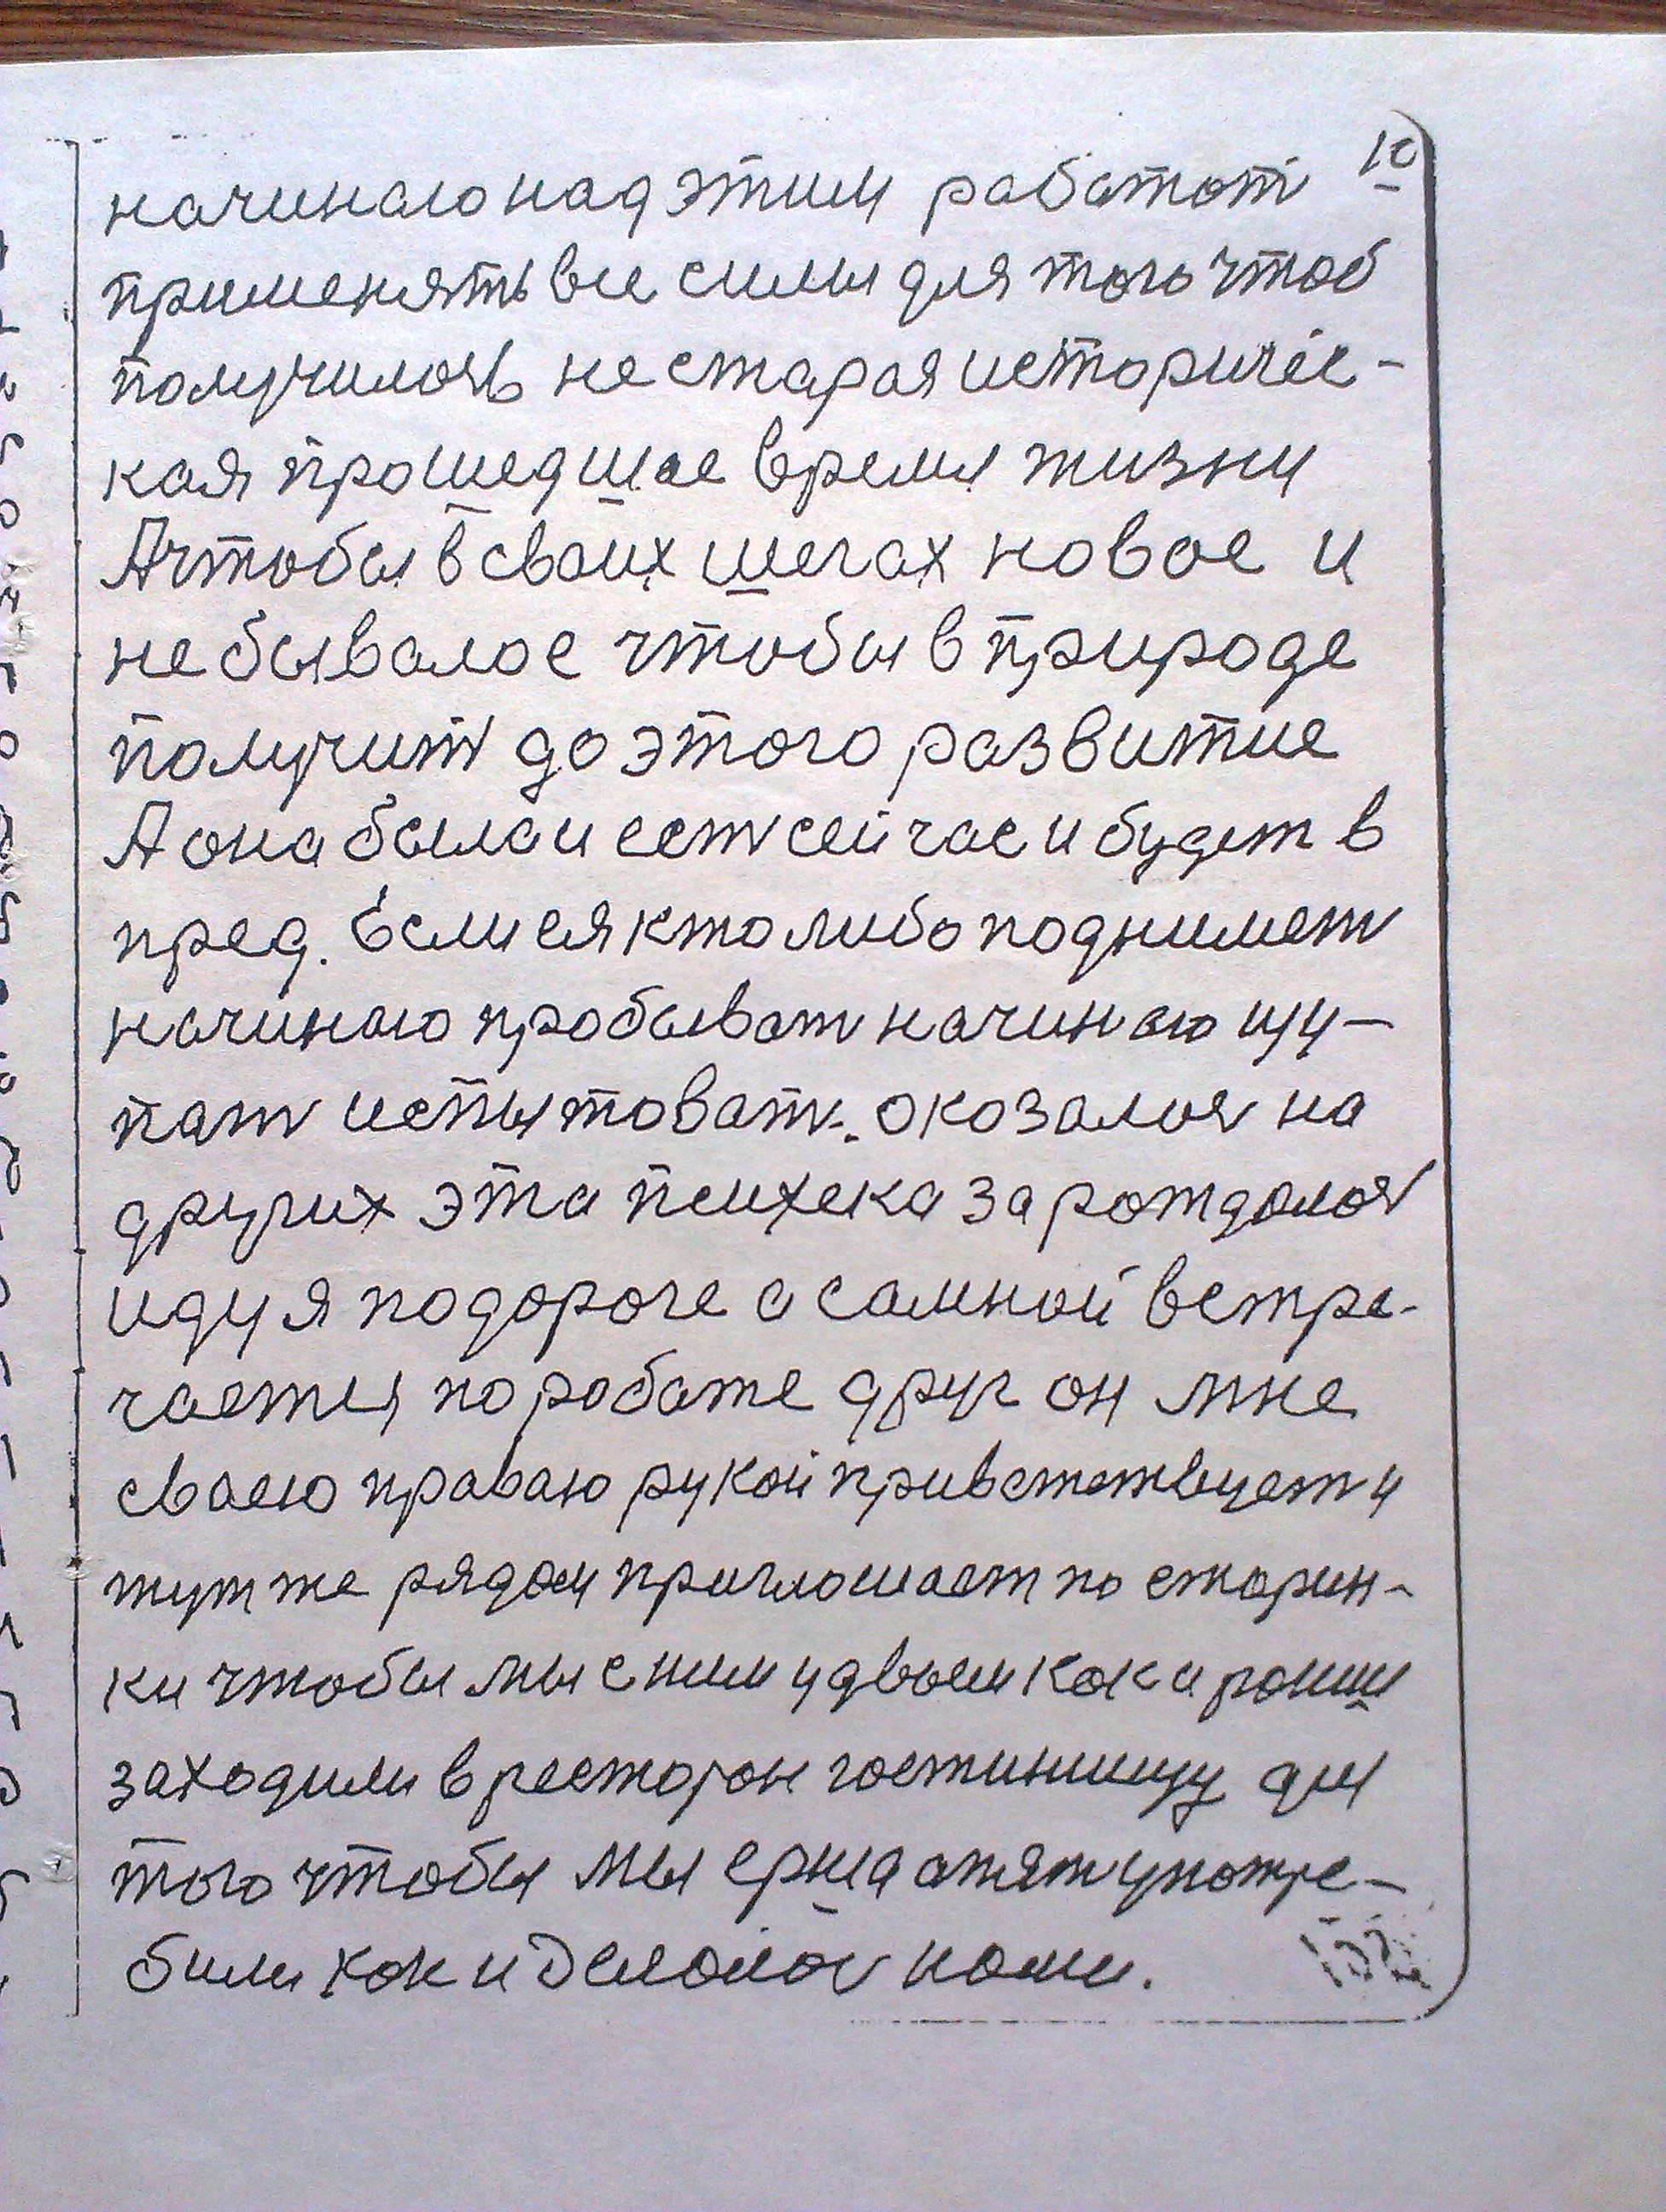 10
начинаю над этим работот
применять все силы для того чтоб
получилось не старая историчес-
кая прошедшае время жизни
А чтобы в сваих шегах новое и
небывалое чтобы в природе
получить до этого развитие
А она была и есть сейчас и будет в
пред. Если ея кто либо поднимет
начинаю пробывать начинаю щу-
пать испытовать. окозалось на
других эта психека зарождалось
иду я подороге а самной встре-
чается по роботе друг он мне
сваею праваю рукой приветствует и
тут же рядом приглошает по старин-
ки чтобы мы с ним удвоем как и раньш
заходили в ресторон гостинницу для
того чтобы мы ерша опять употре-
били как и делолось нами.